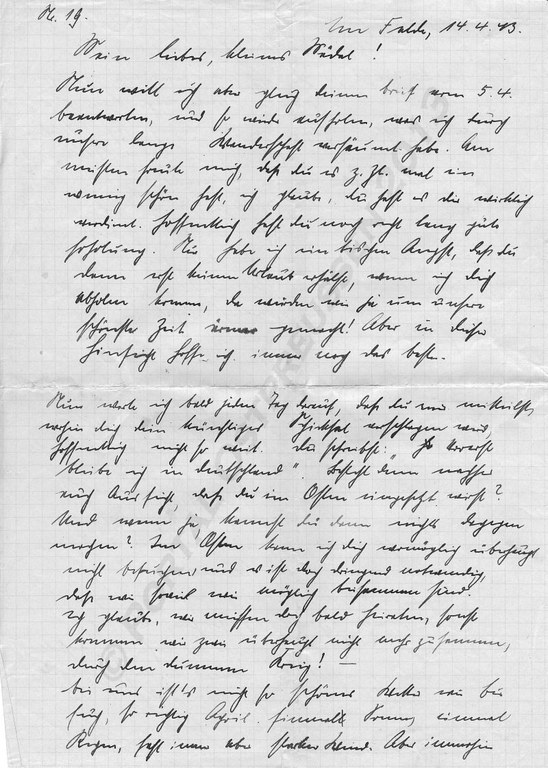 Nr. 19.
Im Felde, 14.4.43.
Mein liebes, kleines Mädel!
Nun will ich aber gleich deinen Brief vom 5.4.
beantworten, und so wieder aufholen, was ich durch
unsere lange Wanderschaft versäumt habe. Am
meisten freute mich, daß du es z. Zt. mal ein
wenig schön hast, ich glaube, du hast es dir wirklich
verdient. Hoffentlich hast du noch recht lang gute
Erholung. Nur habe ich ein bischen Angst, daß du
dann erst keinen Urlaub erhälst, wenn ich dich
abholen komme, da würden wir ja um unsere
schönste Zeit ärmer gemacht! Aber in dieser
Hinsicht hoffe ich immer noch das beste.
Nun warte ich bald jeden Tag darauf, daß du mir mitteilst,
wohin dich dein künftiges Schicksal verschlagen wird,
hoffentlich nicht so weit. Du schreibst: "Zu vorerst
bleibe ich in Deutschland". Besteht denn nachher
auch Aussicht, daß du im Osten eingesetzt wirst?
Und wenn ja, kannst du dann nichts dagegen
machen? Im Osten kann ich dich womöglich überhaupt
nicht besuchen, und es ist doch dringend notwendig,
daß wir soviel wie möglich beisammen sind.
Ich glaube, wir müssen doch bald heiraten, sonst
kommen wir zwei überhaupt nicht mehr zusammen,
durch den dummen Krieg! —
Bei uns ist's nicht so schönes Wetter wie bei
euch, so richtig April. Einmal Sonne, einmal
Regen, fast immer aber starker Wind. Aber immerhin